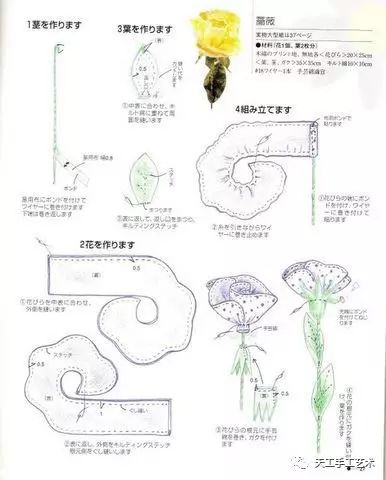 薔薇
実物大型紙は37ページ
●材料(花1個、葉2枚分)
木綿のプリント地、無地各<花びら>20×25cm
<葉、茎、ガク>35×35cm　キルト綿10×10cm
#18ワイヤー1本　手芸綿適宜
1茎を作ります
茎用布 幅0.8
ボンド
茎用布にボンドを付けて
ワイヤーに巻き付けます
下端は巻き返します
3葉を作ります
(裏)
0.5
①中表に合わせ、キ
ルト綿に重ねて周
囲を縫います
ステッチ
0.5
まつります
②表に返して、返し口をまつり、キ
ルティングステッチ
4組み立てます
布用ボンドで
貼ります
①花びらの端にボン
ドを付け、ワイヤ
ーに巻き付けて
貼ります
②糸を引きながらワイヤ
ーに巻き止めます
2花を作ります
(裏)
0.5
①花びらを中表に合わせ、
外側を縫います
ステッチ
(表)
0.5
1
ぐし縫い
②表に返し、外側をキルティングステッチ
根元側をぐし縫いします
手芸綿
0.5
③花びらの根元に手芸
綿を巻き、ガクを付け
ます
先端にボンド
を付けてねじり
ます
④花の根元にガクを縫い付
け、葉を付けます
天工手工艺术